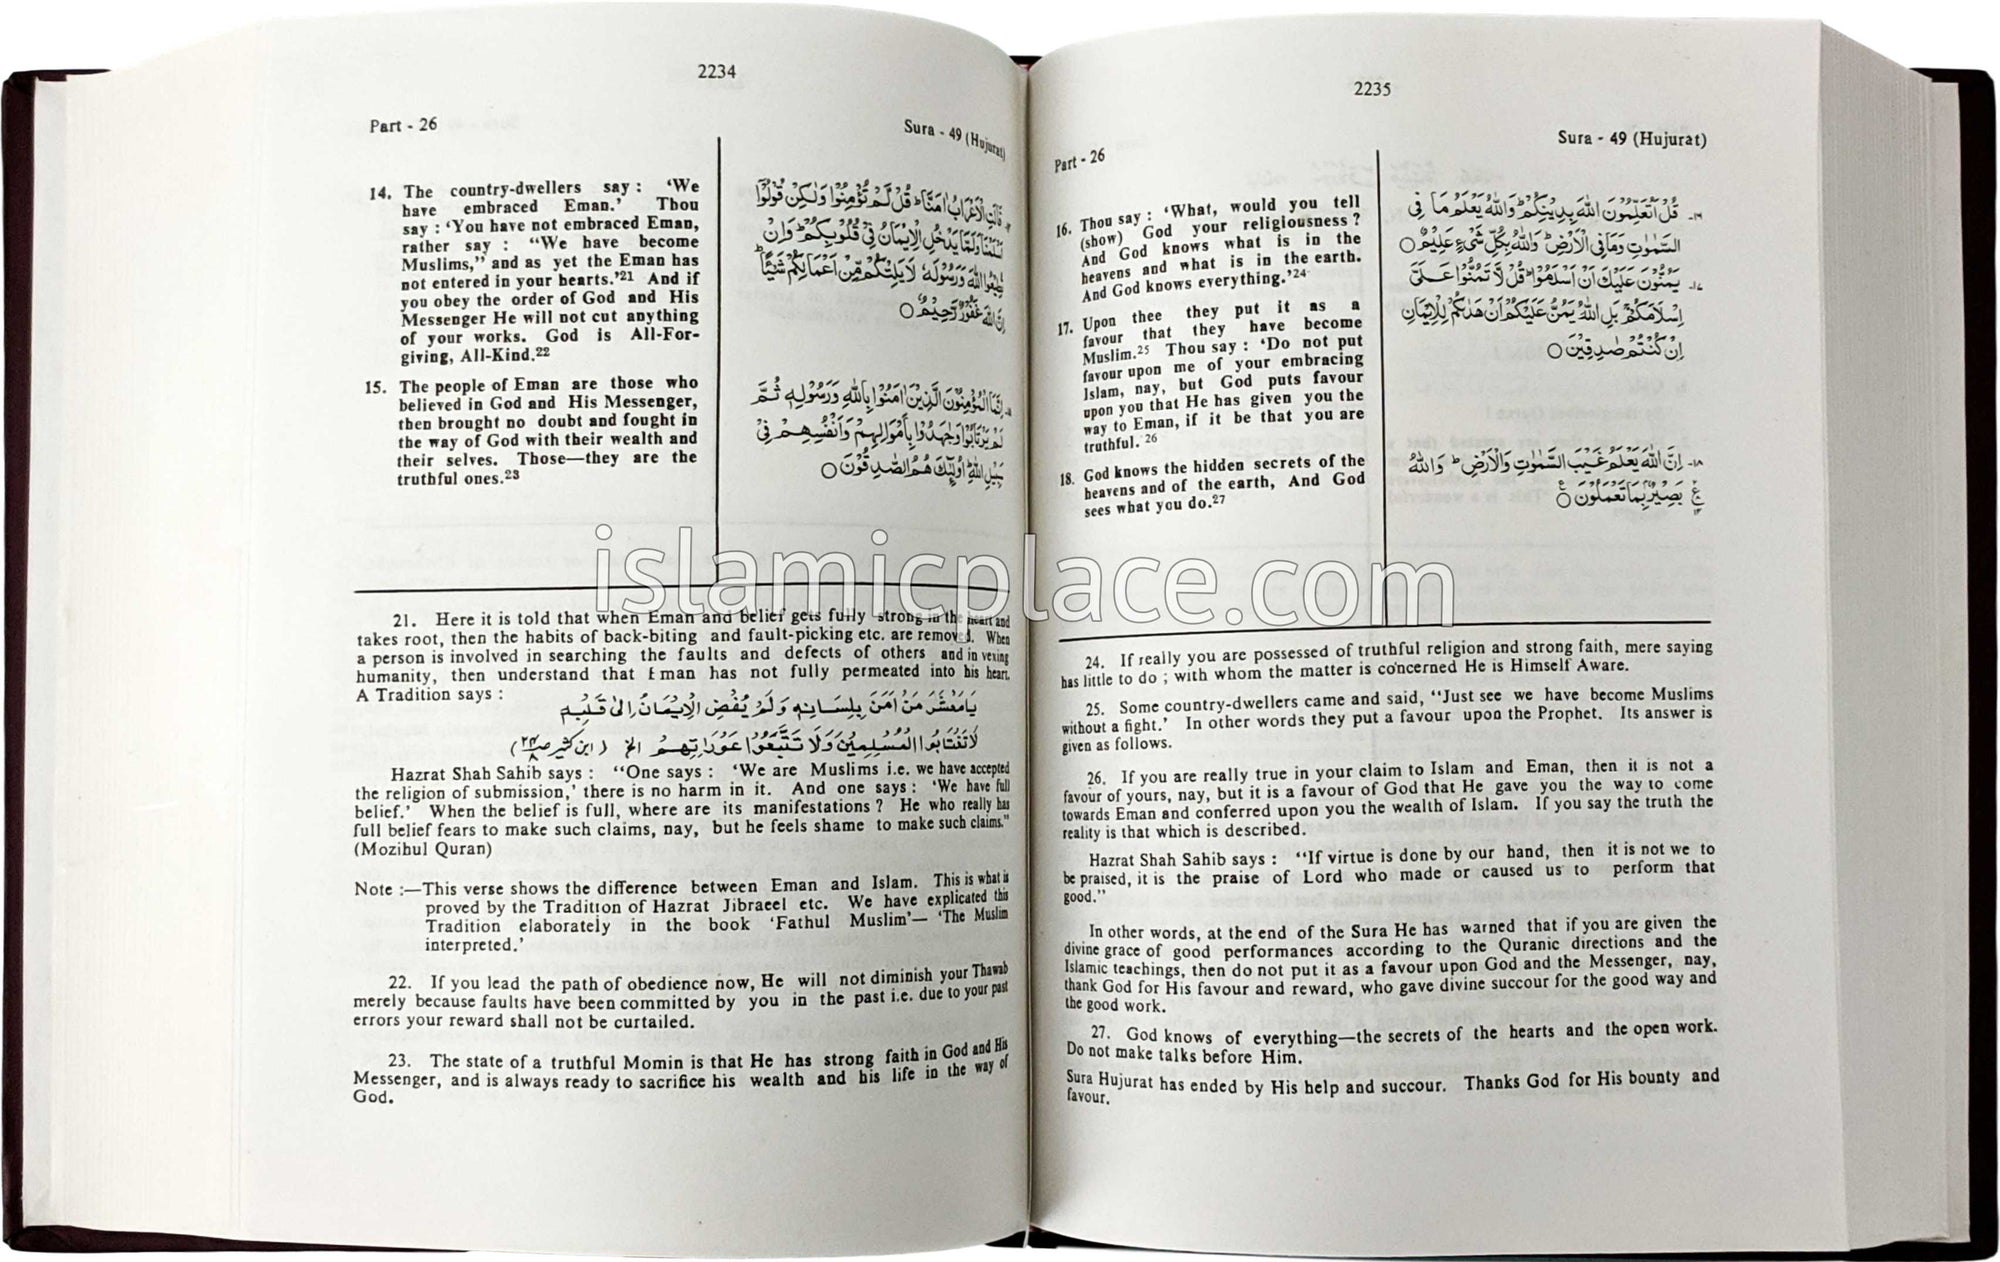 2234
Part - 26
Sura - 49 (Hujurat)
14. The country-dwellers say : ‘We
have embraced Eman.’ Thou
say : ‘You have not embraced Eman,
rather say : “We have become
Muslims,” and as yet the Eman has
not entered in your hearts.’21 And if
you obey the order of God and His
Messenger He will not cut anything
of your works. God is All-For-
giving, All-Kind.22
15. The people of Eman are those who
believed in God and His Messenger,
then brought no doubt and fought in
the way of God with their wealth and
their selves. Those—they are the
truthful ones.23
قَالَتِ الْاَعْرَابُ اٰمَنَّا ؕ قُلْ لَّمْ تُؤْمِنُوْا وَلٰكِنْ قُوْلُوْٓا
اَسْلَمْنَا وَلَمَّا يَدْخُلِ الْاِيْمَانُ فِيْ قُلُوْبِكُمْ ؕ وَاِنْ
تُطِيْعُوا اللّٰهَ وَرَسُوْلَهٗ لَا يَلِتْكُمْ مِّنْ اَعْمَالِكُمْ شَيْـًٔا ؕ
اِنَّ اللّٰهَ غَفُوْرٌ رَّحِيْمٌ ○
اِنَّمَا الْمُؤْمِنُوْنَ الَّذِيْنَ اٰمَنُوْا بِاللّٰهِ وَرَسُوْلِهٖ ثُمَّ
لَمْ يَرْتَابُوْا وَجٰهَدُوْا بِاَمْوَالِهِمْ وَاَنْفُسِهِمْ فِيْ
سَبِيْلِ اللّٰهِ ؕ اُولٰٓئِكَ هُمُ الصّٰدِقُوْنَ ○
21. Here it is told that when Eman and belief gets fully strong in the heart and
takes root, then the habits of back-biting and fault-picking etc. are removed. When
a person is involved in searching the faults and defects of others and in vexing
humanity, then understand that Eman has not fully permeated into his heart.
A Tradition says :
يَا مَعْشَرَ مَنْ اٰمَنَ بِلِسَانِهٖ وَلَمْ يُفْضِ الْاِيْمَانُ اِلٰى قَلْبِهٖ
لَا تَغْتَابُوا الْمُسْلِمِيْنَ وَلَا تَتَّبِعُوْا عَوْرَاتِهِمْ الخ (ابن كثير
Hazrat Shah Sahib says : “One says : ‘We are Muslims i.e. we have accepted
the religion of submission,’ there is no harm in it. And one says : ‘We have full
belief.’ When the belief is full, where are its manifestations ? He who really has
full belief fears to make such claims, nay, but he feels shame to make such claims.”
(Mozihul Quran)
Note :—This verse shows the difference between Eman and Islam. This is what is
proved by the Tradition of Hazrat Jibraeel etc. We have explicated this
Tradition elaborately in the book ‘Fathul Muslim’— ‘The Muslim
interpreted.’
22. If you lead the path of obedience now, He will not diminish your Thawab
merely because faults have been committed by you in the past i.e. due to your past
errors your reward shall not be curtailed.
23. The state of a truthful Momin is that He has strong faith in God and His
Messenger, and is always ready to sacrifice his wealth and his life in the way of
God.
2235
Part - 26
Sura - 49 (Hujurat)
16. Thou say : ‘What, would you tell
(show) God your religiousness ?
And God knows what is in the
heavens and what is in the earth.
And God knows everything.’24
17. Upon thee they put it as a
favour that they have become
Muslim.25 Thou say : ‘Do not put
favour upon me of your embracing
Islam, nay, but God puts favour
upon you that He has given you the
way to Eman, if it be that you are
truthful.26
18. God knows the hidden secrets of the
heavens and of the earth, And God
sees what you do.27
۱۶- قُلْ اَتُعَلِّمُوْنَ اللّٰهَ بِدِيْنِكُمْ ؕ وَاللّٰهُ يَعْلَمُ مَا فِي
السَّمٰوٰتِ وَمَا فِي الْاَرْضِ ؕ وَاللّٰهُ بِكُلِّ شَيْءٍ عَلِيْمٌ ○
۱۷- يَمُنُّوْنَ عَلَيْكَ اَنْ اَسْلَمُوْا ؕ قُلْ لَّا تَمُنُّوْا عَلَيَّ
اِسْلَامَكُمْ ۚ بَلِ اللّٰهُ يَمُنُّ عَلَيْكُمْ اَنْ هَدٰىكُمْ لِلْاِيْمَانِ
اِنْ كُنْتُمْ صٰدِقِيْنَ ○
۱۸- اِنَّ اللّٰهَ يَعْلَمُ غَيْبَ السَّمٰوٰتِ وَالْاَرْضِ ؕ وَاللّٰهُ
بَصِيْرٌۢ بِمَا تَعْمَلُوْنَ ○
24. If really you are possessed of truthful religion and strong faith, mere saying
has little to do ; with whom the matter is concerned He is Himself Aware.
25. Some country-dwellers came and said, “Just see we have become Muslims
without a fight.’ In other words they put a favour upon the Prophet. Its answer is
given as follows.
26. If you are really true in your claim to Islam and Eman, then it is not a
favour of yours, nay, but it is a favour of God that He gave you the way to come
towards Eman and conferred upon you the wealth of Islam. If you say the truth the
reality is that which is described.
Hazrat Shah Sahib says : “If virtue is done by our hand, then it is not we to
be praised, it is the praise of Lord who made or caused us to perform that
good.”
In other words, at the end of the Sura He has warned that if you are given the
divine grace of good performances according to the Quranic directions and the
Islamic teachings, then do not put it as a favour upon God and the Messenger, nay,
thank God for His favour and reward, who gave divine succour for the good way and
the good work.
27. God knows of everything—the secrets of the hearts and the open work.
Do not make talks before Him.
Sura Hujurat has ended by His help and succour. Thanks God for His bounty and
favour.
islamicplace.com